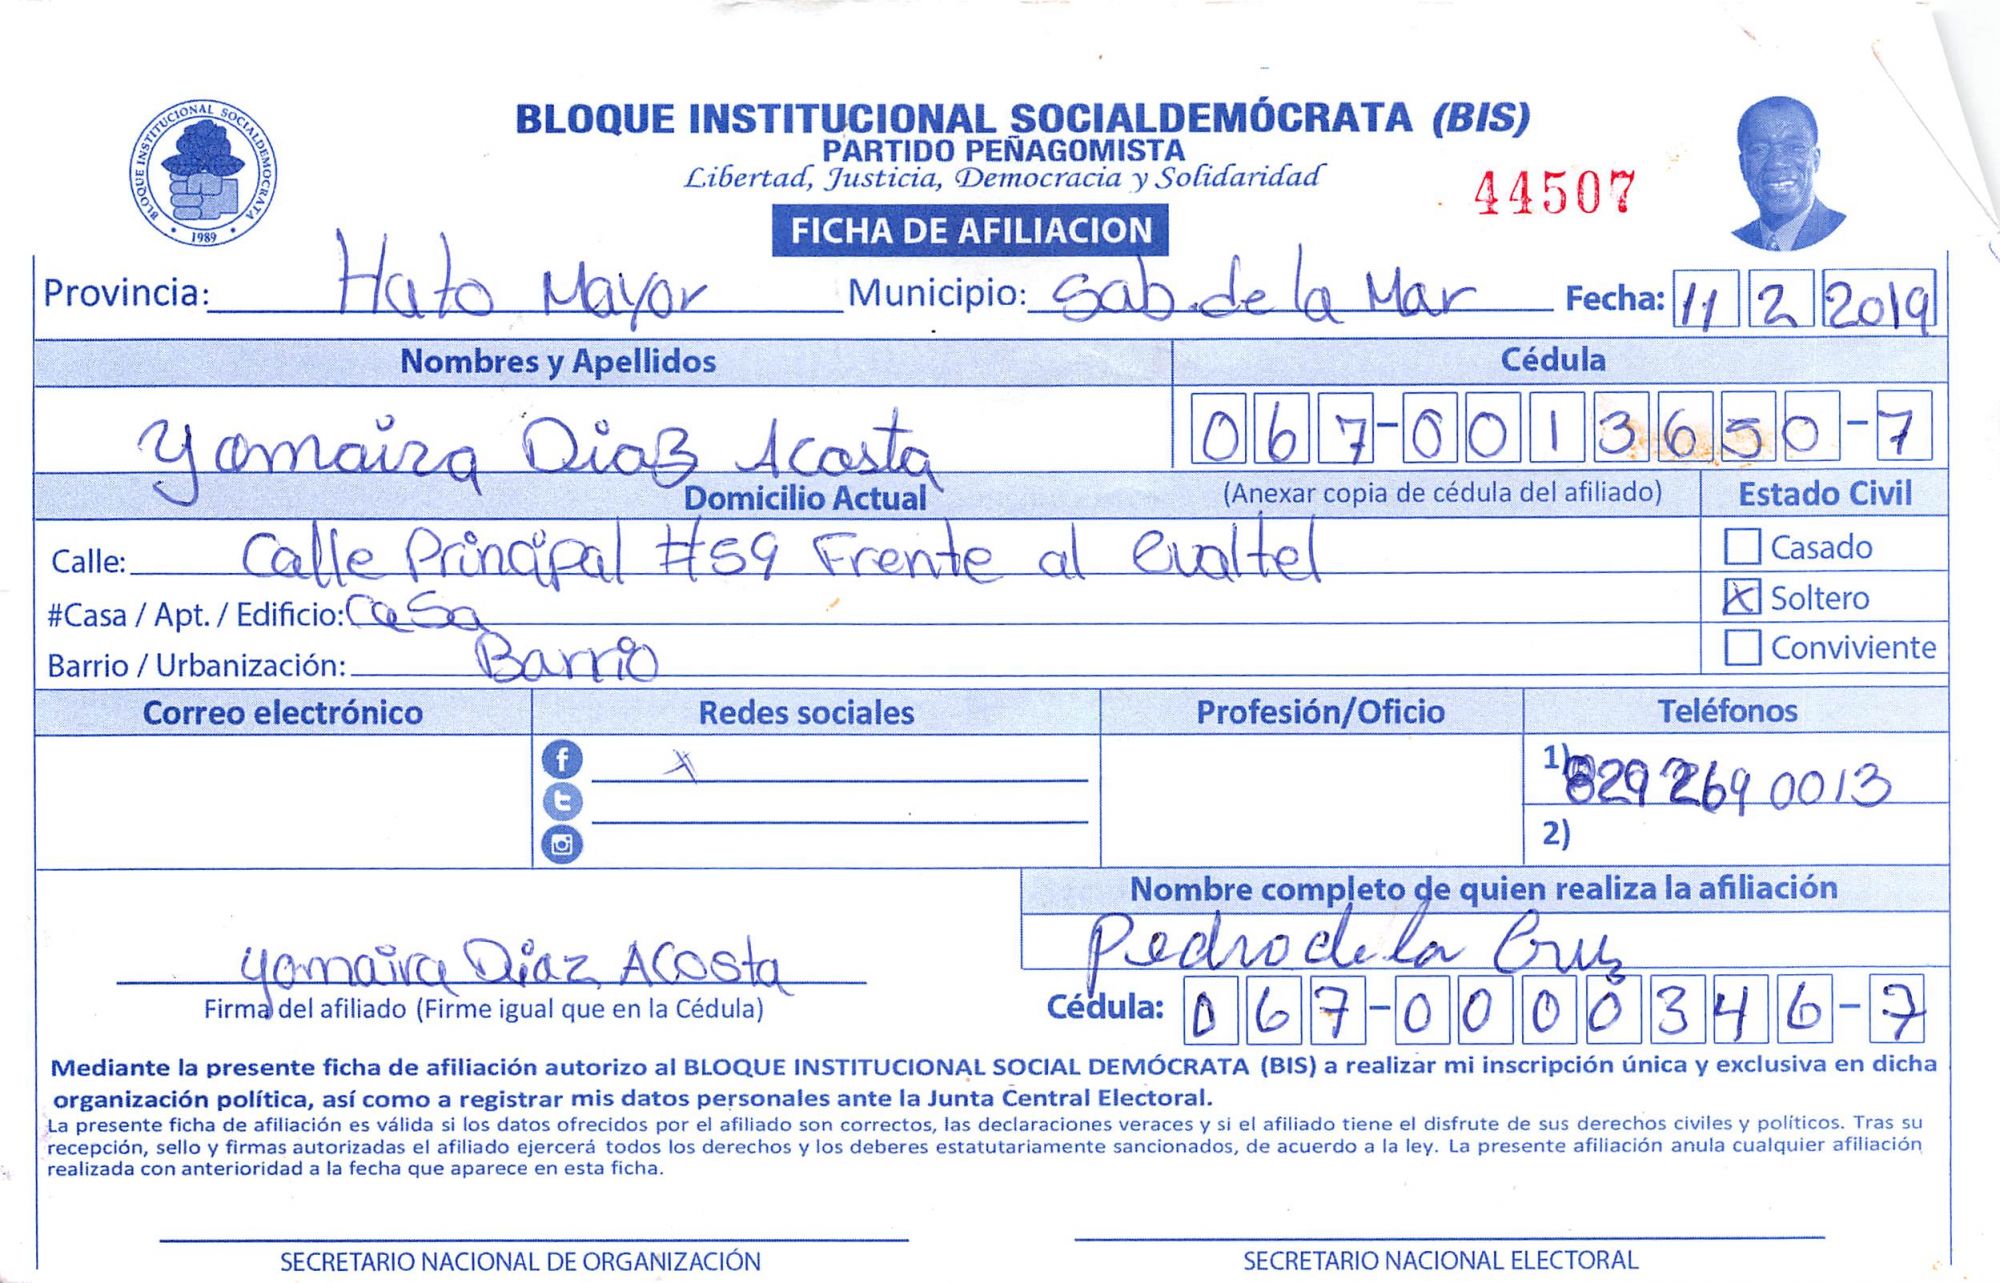 BLOQUE INSTITUCIONAL SOCIALDEMÓCRATA (BIS)
PARTIDO PEÑAGOMISTA
Libertad, Justicia, Democracia y Solidaridad
44507
BLOQUE INSTITUCIONAL SOCIALDEMOCRATA
1989
FICHA DE AFILIACION
Provincia: Hato Mayor Municipio: Sab. de la Mar Fecha: 11 2 2019
Nombres y Apellidos Cédula
Yomaira Diaz Acosta 067-0013650-7
Domicilio Actual (Anexar copia de cédula del afiliado) Estado Civil
Calle: Calle Principal #59 Frente al Casado
#Casa / Apt. / Edificio: Casa X Soltero
Barrio / Urbanización: Barrio Conviviente
Correo electrónico Redes sociales Profesión/Oficio Teléfonos
f x 1) 829 269 0013
2)
Nombre completo de quien realiza la afiliación
Pedro de la Cruz
Yomaira Diaz Acosta
Firma del afiliado (Firme igual que en la Cédula) Cédula: 067-0000346-7
Mediante la presente ficha de afiliación autorizo al BLOQUE INSTITUCIONAL SOCIAL DEMÓCRATA (BIS) a realizar mi inscripción única y exclusiva en dicha
organización política, así como a registrar mis datos personales ante la Junta Central Electoral.
La presente ficha de afiliación es válida si los datos ofrecidos por el afiliado son correctos, las declaraciones veraces y si el afiliado tiene el disfrute de sus derechos civiles y políticos. Tras su
recepción, sello y firmas autorizadas el afiliado ejercerá todos los derechos y los deberes estatutariamente sancionados, de acuerdo a la ley. La presente afiliación anula cualquier afiliación
realizada con anterioridad a la fecha que aparece en esta ficha.
SECRETARIO NACIONAL DE ORGANIZACIÓN SECRETARIO NACIONAL ELECTORAL